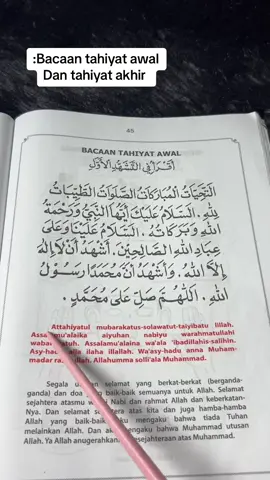 :Bacaan tahiyat awal
Dan tahiyat akhir
45
BACAAN TAHIYAT AWAL
أقرل في التشهد الأول
التحيات المباركات الصلوات الطيبات
لله. السلام عليك أيها النبي ورحمة
الله وبركاته. السلام علينا وعلى
عباد الله الصالحين. أشهد أن لا إله
إلا الله. وأشهد أن محمدا رسول
الله. اللهم صل على محمد.
Attahiyatul mubarakatus-solawatut-taiyibatu lillah.
Assalamu'alaika aiyuhan nabiyu warahmatullahi
wabarakatuh. Assalamu'alaina wa'ala 'ibadillahis-salihin.
Asy-hadu alla ilaha illallah. Wa'asy-hadu anna Muham-
madar rasulullah. Allahumma solli'ala Muhammad.
Segala ucapan selamat yang berkat-berkat (berganda-
ganda) dan doa yang baik-baik semuanya untuk Allah. Selamat
sejahtera atasmu wahai Nabi dan rahmat Allah dan keberkatan-
Nya. Dan selamat sejahtera atas kita dan juga hamba-hamba
Allah yang baik-baik. Aku mengaku bahwa tiada Tuhan
melainkan Allah. Dan aku mengaku bahwa Muhammad utusan
Allah. Ya Allah anugerahkanlah kesejahteraan atas Muhammad.